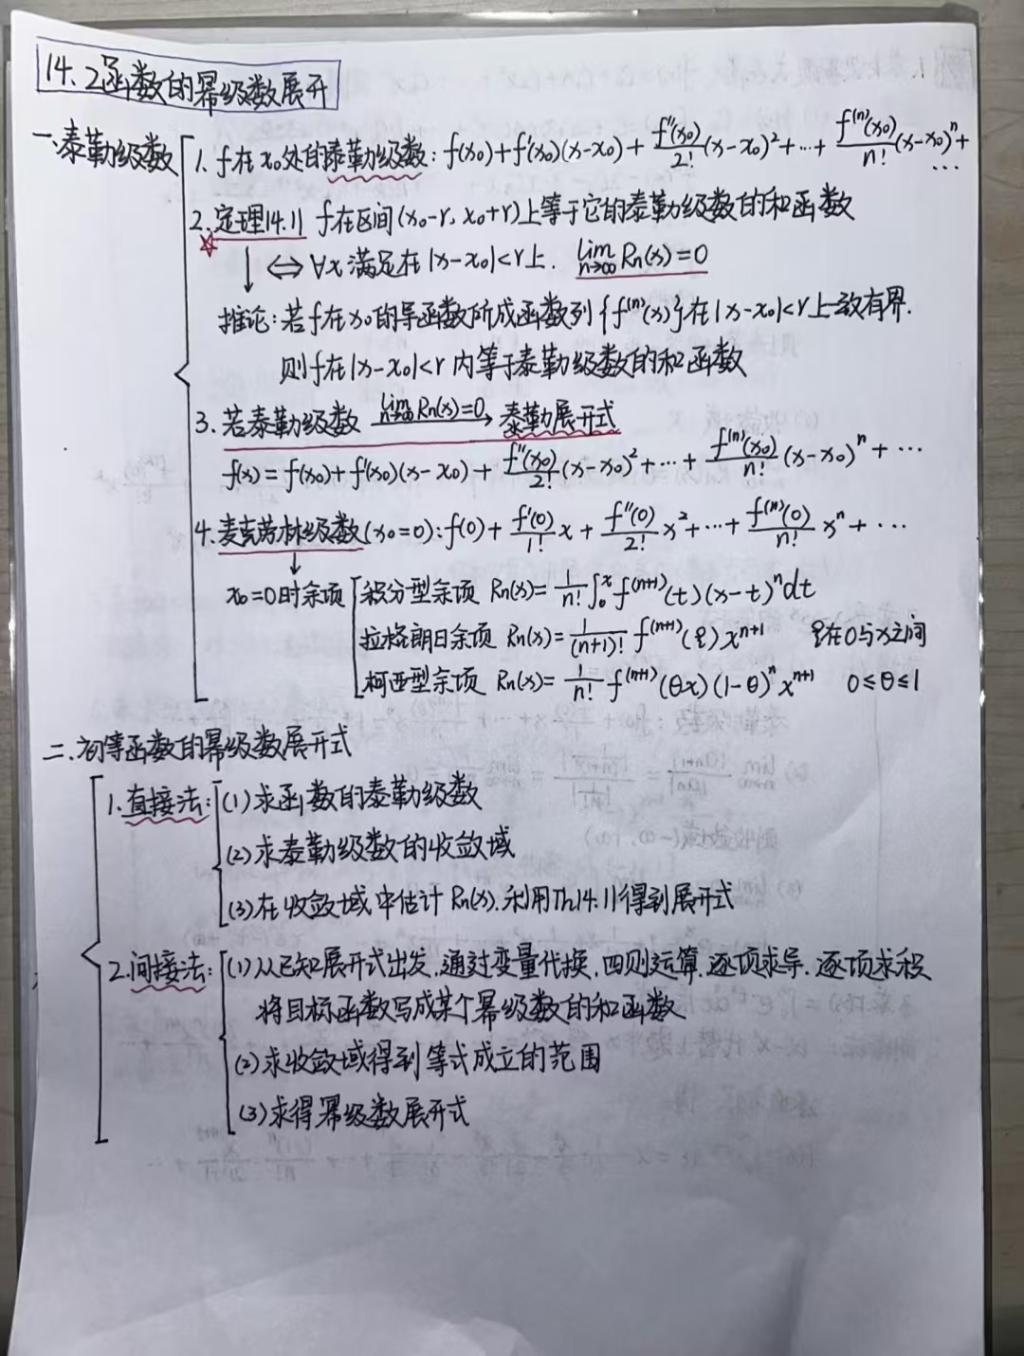 14.2函数的幂级数展开
一.泰勒级数
1. f在x₀处的泰勒级数: f(x₀)+f'(x₀)(x-x₀)+f''(x₀)/2!(x-x₀)²+…+f⁽ⁿ⁾(x₀)/n!(x-x₀)ⁿ+…
2.定理14.11 f在区间(x₀-r, x₀+r)上等于它的泰勒级数的和函数
☆
↓ ⇔ ∀x满足在|x-x₀|<r上. lim n→∞ Rn(x)=0
推论:若f在x₀的导函数所成函数列{f⁽ⁿ⁾(x)}在|x-x₀|<r上一致有界.
则f在|x-x₀|<r内等于泰勒级数的和函数
3.若泰勒级数 lim n→∞ Rn(x)=0 → 泰勒展开式
f(x)=f(x₀)+f'(x₀)(x-x₀)+f''(x₀)/2!(x-x₀)²+…+f⁽ⁿ⁾(x₀)/n!(x-x₀)ⁿ+…
4.麦克劳林级数(x₀=0): f(0)+f'(0)/1! x+f''(0)/2! x²+…+f⁽ⁿ⁾(0)/n! xⁿ+…
↓
x₀=0时余项
积分型余项 Rn(x)=1/n! ∫₀ˣ f⁽ⁿ⁺¹⁾(t)(x-t)ⁿdt
拉格朗日余项 Rn(x)=1/(n+1)! f⁽ⁿ⁺¹⁾(ξ)xⁿ⁺¹ ξ在0与x之间
柯西型余项 Rn(x)=1/n! f⁽ⁿ⁺¹⁾(θx)(1-θ)ⁿxⁿ⁺¹ 0≤θ≤1
二.初等函数的幂级数展开式
1.直接法:(1)求函数的泰勒级数
(2)求泰勒级数的收敛域
(3)在收敛域中估计Rn(x).利用Th14.11得到展开式
2.间接法:(1)从已知展开式出发.通过变量代换.四则运算.逐项求导.逐项求积
将目标函数写成某个幂级数的和函数
(2)求收敛域得到等式成立的范围
(3)求得幂级数展开式